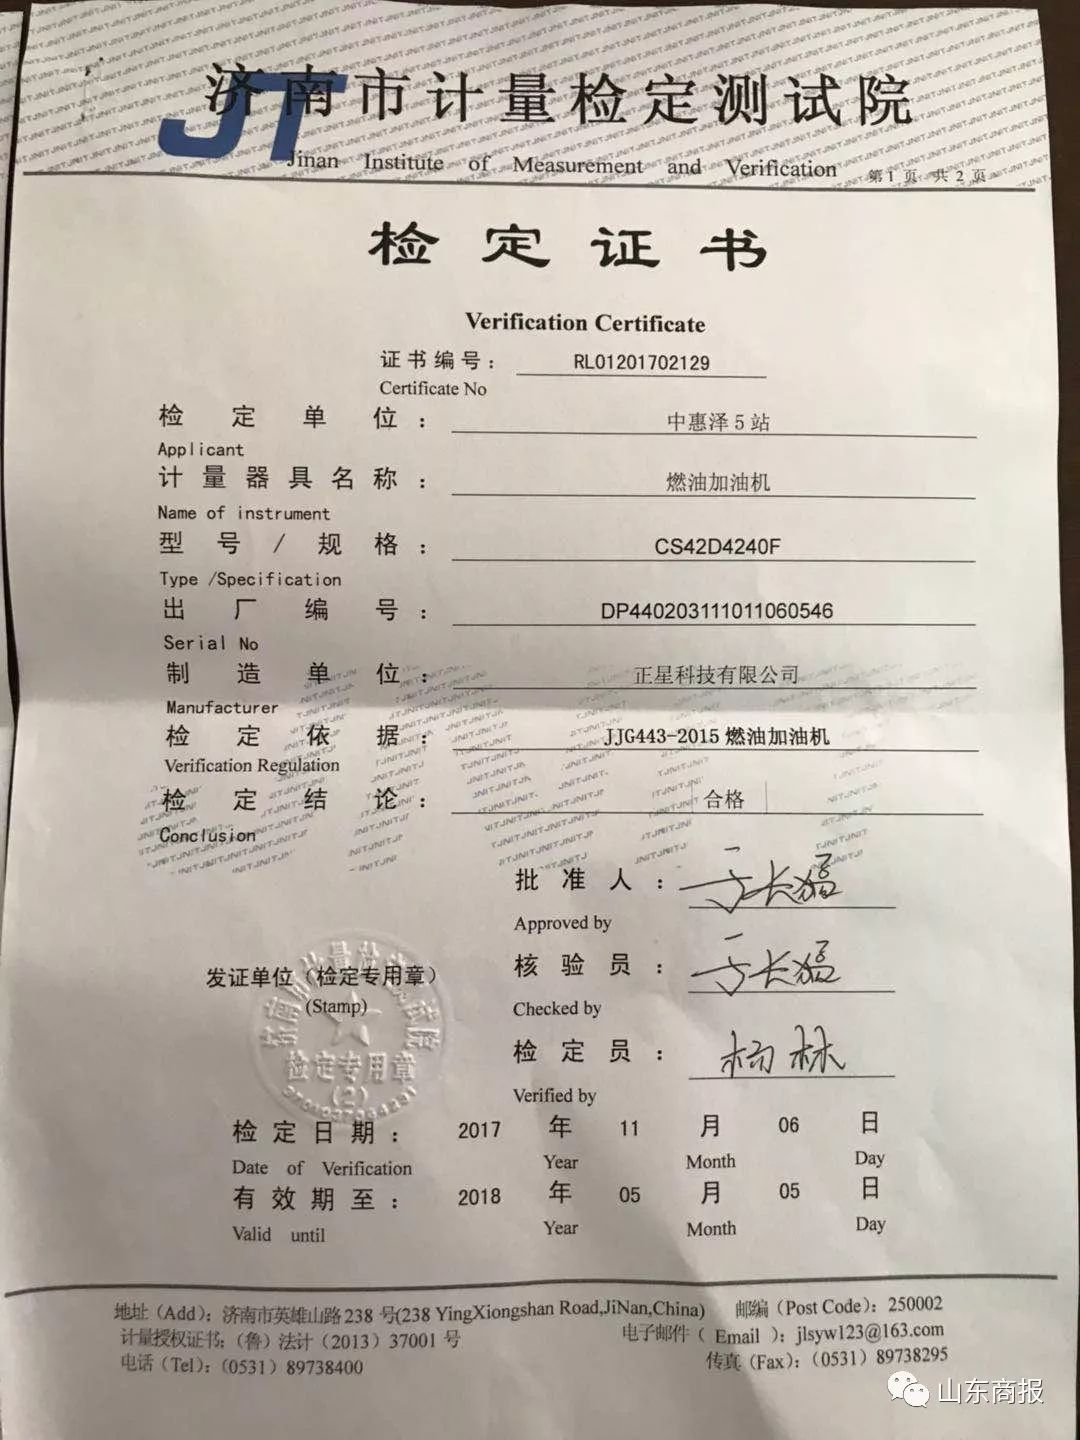 济南市计量检定测试院
JT
Jinan Institute of Measurement and Verification
第1页 共2页
检定证书
Verification Certificate
证书编号： RL01201702129
Certificate No
检定单位： 中惠泽5站
Applicant
计量器具名称： 燃油加油机
Name of instrument
型号/规格： CS42D4240F
Type /Specification
出厂编号： DP440203111011060546
Serial No
制造单位： 正星科技有限公司
Manufacturer
检定依据： JJG443-2015 燃油加油机
Verification Regulation
检定结论： 合格
Conclusion
批准人： 于长猛
Approved by
核验员： 于长猛
Checked by
发证单位（检定专用章）
(Stamp)
检定专用章
(2)
检定员： 杨林
Verified by
检定日期： 2017 年 11 月 06 日
Date of Verification Year Month Day
有效期至： 2018 年 05 月 05 日
Valid until Year Month Day
地址（Add）：济南市英雄山路238号(238 YingXiongshan Road,JiNan,China) 邮编（Post Code）：250002
计量授权证书：（鲁）法计（2013）37001号 电子邮件（ Email ）：jlsyw123@163.com
电话（Tel）：（0531）89738400 传真（Fax）：（0531）89738295
山东商报